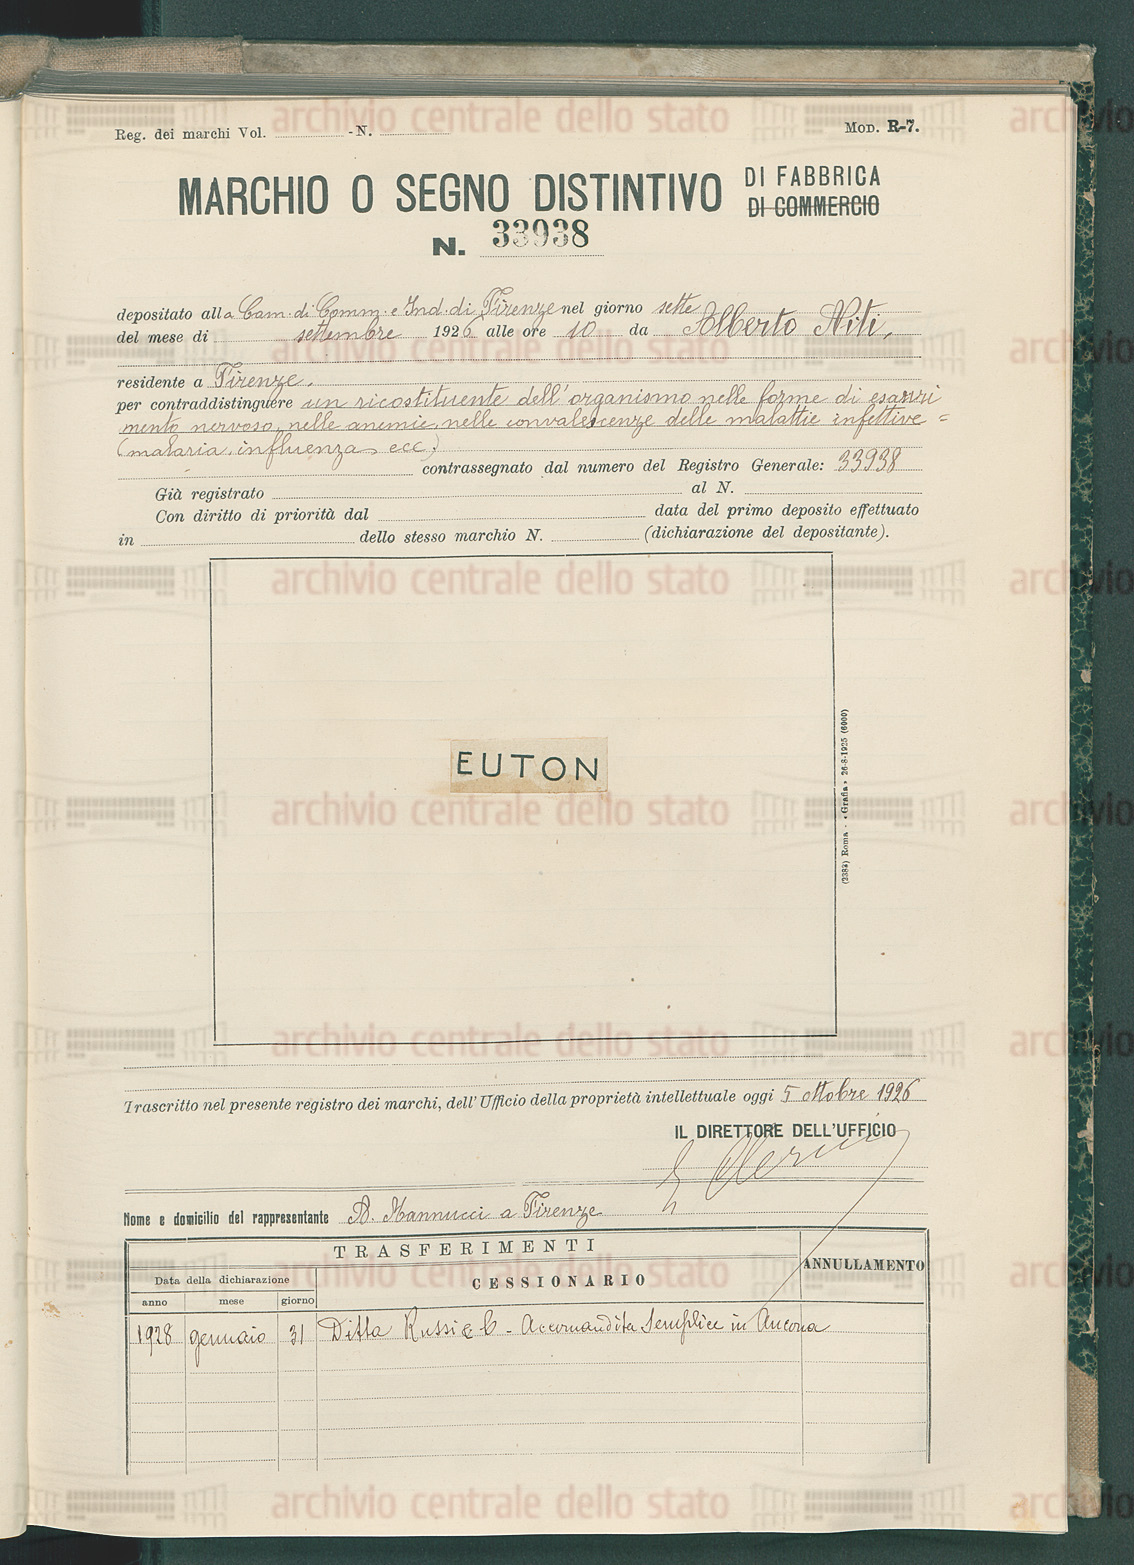 Reg. dei marchi Vol. - N. Mod. R-7.
MARCHIO O SEGNO DISTINTIVO DI FABBRICA
DI COMMERCIO
N. 33938
depositato alla Cam. di Comm. e Ind. di Firenze nel giorno sette
del mese di settembre 1926 alle ore 10 da Alberto Niti,
residente a Firenze.
per contraddistinguere un ricostituente dell'organismo nelle forme di esauri
mento nervoso, nelle anemie, nelle convalescenze delle malattie infettive =
(malaria, influenza ecc.)
contrassegnato dal numero del Registro Generale: 33938
Già registrato al N.
Con diritto di priorità dal data del primo deposito effettuato
in dello stesso marchio N. (dichiarazione del depositante).
EUTON
(2383) Roma - «Grafia» 26-8-1925 (6000)
Trascritto nel presente registro dei marchi, dell'Ufficio della proprietà intellettuale oggi 5 ottobre 1926
IL DIRETTORE DELL'UFFICIO
Nome e domicilio del rappresentante A. Mannucci a Firenze
TRASFERIMENTI
ANNULLAMENTO
Data della dichiarazione
CESSIONARIO
anno mese giorno
1928 gennaio 31 Ditta Russi e C - Accomandita Semplice in Ancona
archivio centrale dello stato